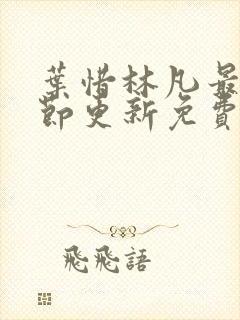 葉惜林凡最
節更新免費
飛飛語